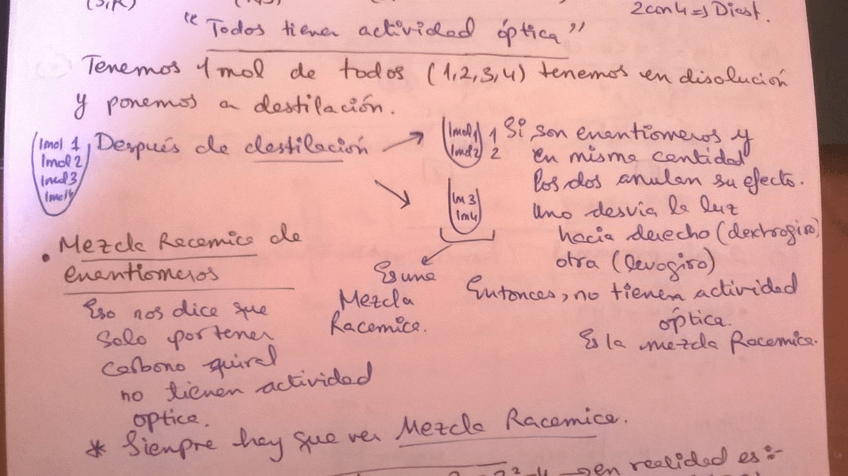 2con4=> Diast.
"Todos tienen actividad óptica"
Tenemos 1 mol de todos (1,2,3,4) tenemos en disolución
y ponemos a destilación.
1mol 1
1mol 2
1mol 3
1mol 4
Después de destilación
1mol 1 1
1mol 2 2
Si son enentiomeros y
en misma centidad
los dos anulan su efecto.
Uno desvia la luz
hacia derecho (dextrogiro)
otra (levogiro)
Entonces, no tienen actividad
óptica.
Es la mezcla Racemice.
1m 3
1m 4
Es una
Mezcla
Racemice.
• Mezcla Racemice de
enentiomeros
Eso nos dice que
solo por tener
carbono quiral
no tienen actividad
optica.
* Sienpre hay que ver Mezcla Racemice.
en realidad es:-